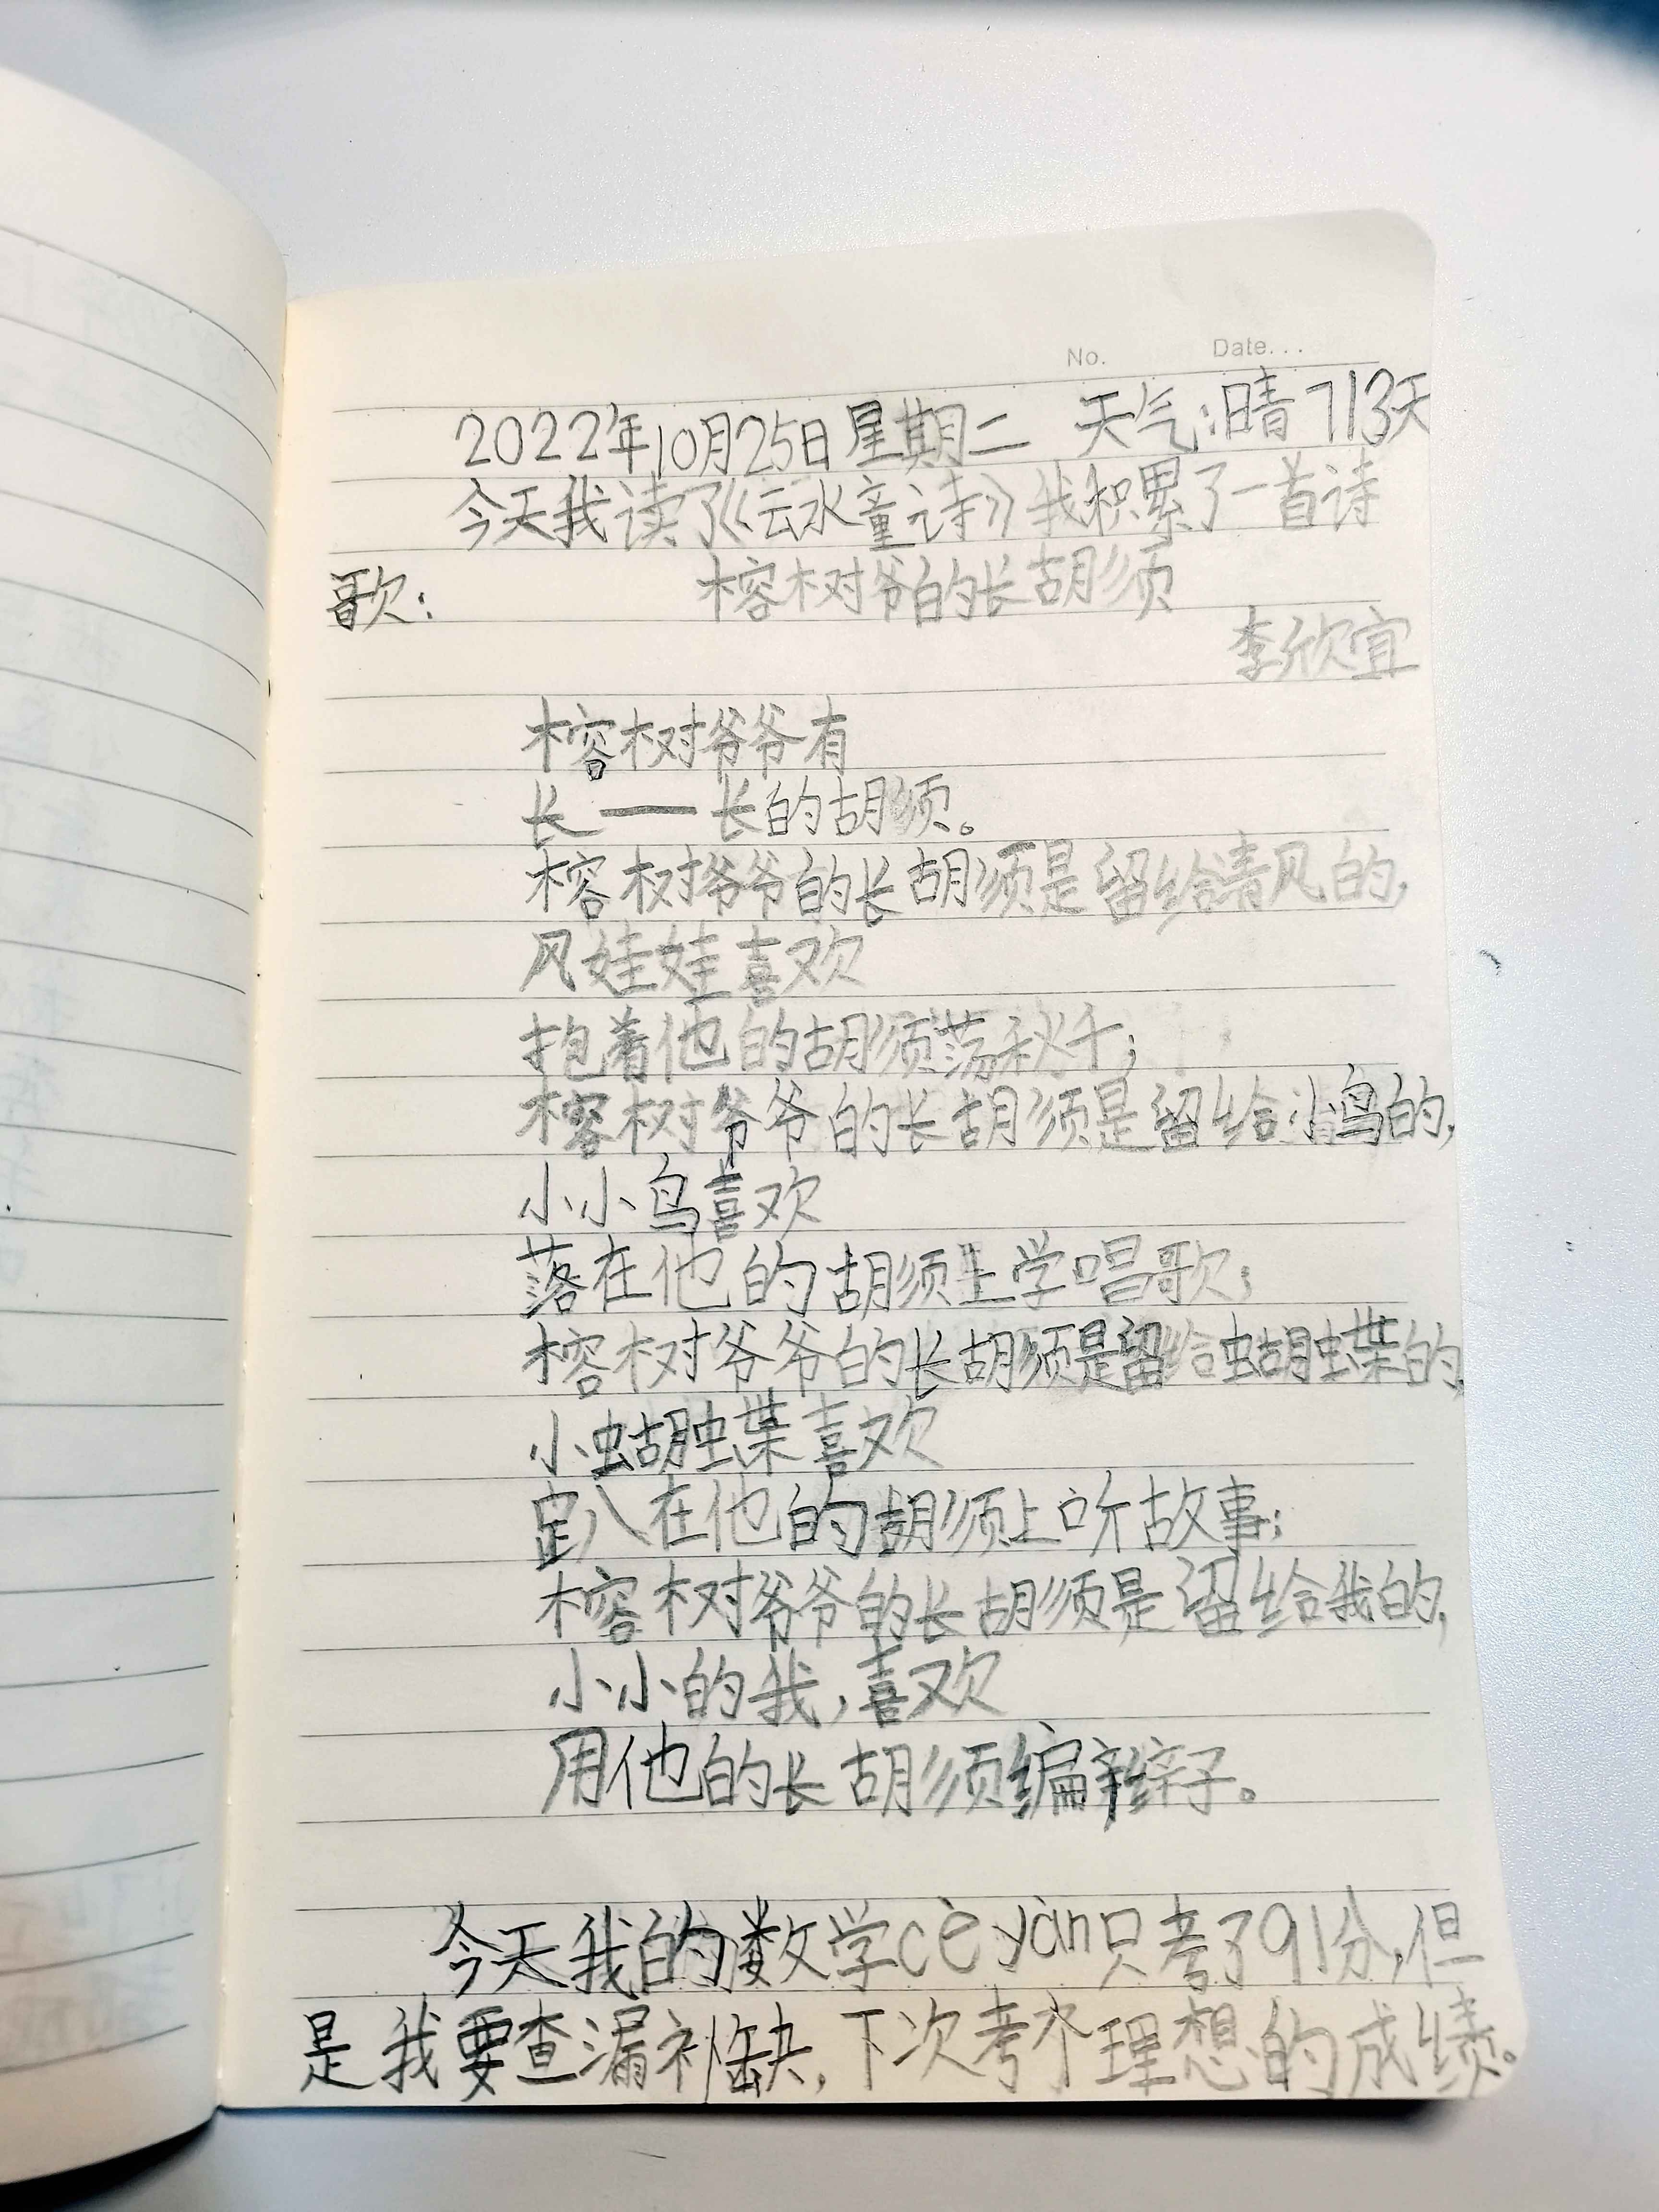 No. Date...
2022年10月25日星期二 天气:晴 713天
今天我读了《云水童诗》我积累了一首诗
歌: 榕树爷的长胡须
李欣宜
榕树爷爷有
长——长的胡须。
榕树爷爷的长胡须是留给清风的,
风娃娃喜欢
抱着他的胡须荡秋千;
榕树爷爷的长胡须是留给小鸟的,
小小鸟喜欢
落在他的胡须上学唱歌;
榕树爷爷的长胡须是留给蝴蝶的,
小蝴蝶喜欢
趴在他的胡须上听故事;
榕树爷爷的长胡须是留给我的,
小小的我,喜欢
用他的长胡须编辫子。
今天我的数学cè yàn只考了91分,但
是我要查漏补缺,下次考个理想的成绩。